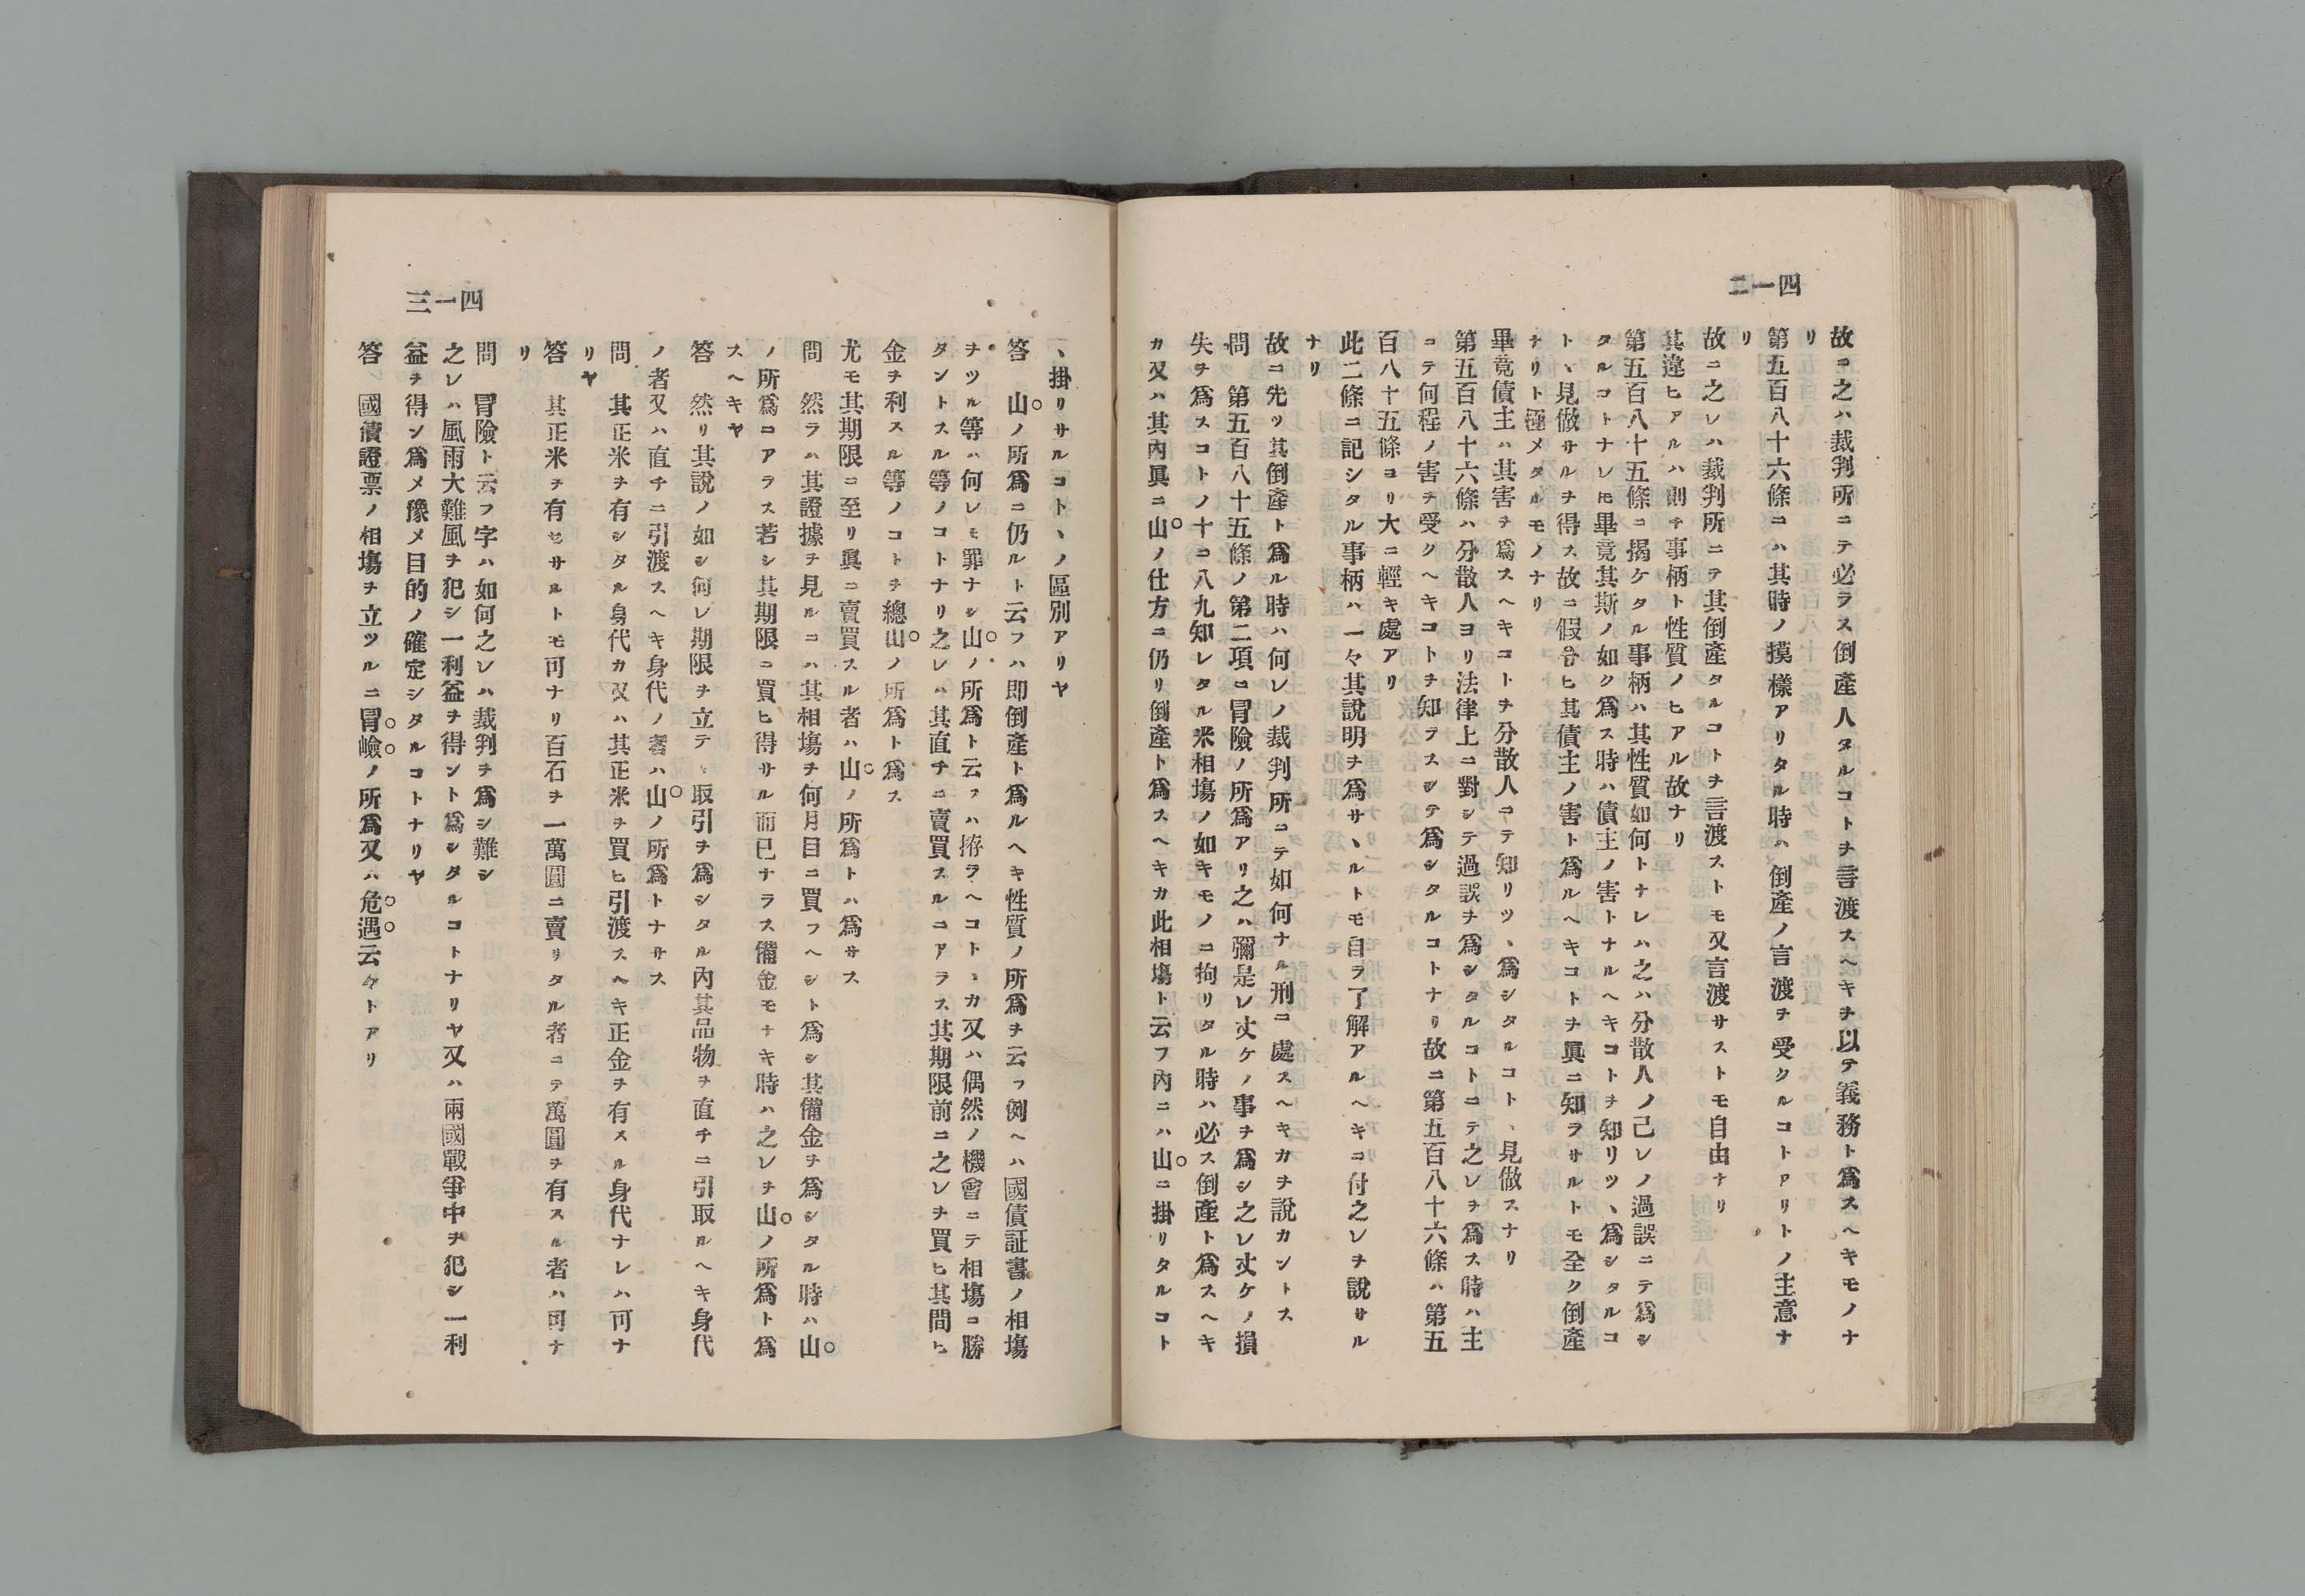 四一二
故ニ之ハ裁判所ニテ必ラス倒產人タルコトヲ言渡スヘキヲ以テ義務ト爲スヘキモノナ
リ
第五百八十六條ニハ其時ノ摸樣アリタル時ハ倒產ノ言渡ヲ受クルコトアリトノ主意ナ
リ
故ニ之レハ裁判所ニテ其倒產タルコトヲ言渡ストモ又言渡サストモ自由ナリ
其違ヒアルハ則チ事柄ト性質ノヒアル故ナリ
第五百八十五條ニ揭ケタル事柄ハ其性質如何トナレハ之ハ分散人ノ己レノ過誤ニテ爲シ
タルコトナレモ畢竟其斯ノ如ク爲ス時ハ債主ノ害トナルヘキコトヲ知リツヽ爲シタルコ
トヽ見做サルヲ得ス故ニ假令ヒ其債主ノ害ト爲ルヘキコトヲ眞ニ知ラサルトモ全ク倒產
ナリト極メタルモノナリ
畢竟債主ハ其害ヲ爲スヘキコトヲ分散人ニテ知リツヽ爲シタルコトヽ見做スナリ
第五百八十六條ハ分散人ヨリ法律上ニ對シテ過誤ヲ爲シタルコトニテ之レヲ爲ス時ハ主
ニテ何程ノ害ヲ受クヘキコトヲ知ラスシテ爲シタルコトナリ故ニ第五百八十六條ハ第五
百八十五條ヨリ大ニ輕キ處アリ
此二條ニ記シタル事柄ハ一々其說明ヲ爲サヽルトモ自ラ了解アルヘキニ付之レヲ說サル
ナリ
故ニ先ツ其倒產ト爲ル時ハ何レノ裁判所ニテ如何ナル刑ニ處スヘキカヲ說カントス
問　第五百八十五條ノ第二項ニ冒險ノ所爲アリ之ハ彌是レ丈ケノ事ヲ爲シ之レ丈ケノ損
失ヲ爲スコトノ十ニ八九知レタル米相塲ノ如キモノニ拘リタル時ハ必ス倒產ト爲スヘキ
カ又ハ其內眞ニ山ノ仕方ニ仍リ倒產ト爲スヘキカ此相塲ト云フ內ニハ山ニ掛リタルコト
四一三
ヽ掛リサルコトヽノ區別アリヤ
答　山ノ所爲ニ仍ルト云フハ即倒產ト爲ルヘキ性質ノ所爲ヲ云フ例ヘハ國債証書ノ相塲
ヲツル等ハ何レモ罪ナシ山ノ所爲ト云フハ拵ラヘコトヽカ又ハ偶然ノ機會ニテ相塲ニ勝
タントスル等ノコトナリ之レハ其直チニ賣買スルニアラス其期限前ニ之レヲ買ヒ其間ヒ
金ヲ利スル等ノコトヲ總山ノ所爲ト爲ス
尤モ其期限ニ至リ眞ニ賣買スル者ハ山ノ所爲トハ爲サス
問　然ラハ其證據ヲ見ルニハ其相塲ヲ何月目ニ買フヘシト爲シ其備金ヲ爲シタル時ハ山
ノ所爲ニアラス若シ其期限ニ買ヒ得サル而已ナラス備金モナキ時ハ之レヲ山ノ所爲ト爲
スヘキヤ
答　然リ其說ノ如シ何レ期限ヲ立テヽ取引ヲ爲シタル內其品物ヲ直チニ引取ルヘキ身代
ノ者又ハ直チニ引渡スヘキ身代ノ者ハ山ノ所爲トナサス
問　其正米ヲ有シタル身代カ又ハ其正米ヲ買ヒ引渡スヘキ正金ヲ有スル身代ナレハ可ナ
リヤ
答　其正米ヲ有セサルトモ可ナリ百石ヲ一萬圓ニ賣リタル者ニテ萬圓ヲ有スル者ハ可ナ
リ
問　冒險ト云フ字ハ如何之レハ裁判ヲ爲シ難シ
之レハ風雨大難風ヲ犯シ一利益ヲ得ント爲シタルコトナリヤ又ハ兩國戰爭中ヲ犯シ一利
益ヲ得ン爲メ豫メ目的ノ確定シタルコトナリヤ
答　國債證票ノ相塲ヲ立ツルニ冒嶮ノ所爲又ハ危遇云々トアリ